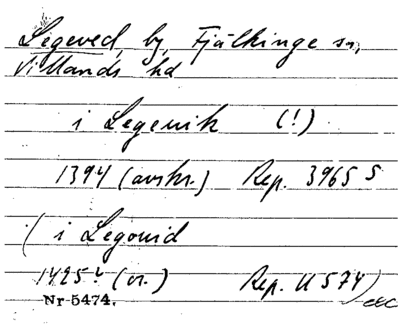 Legeved, by, Fjälkinge sn,
Villands hd
i Legewik (!)
1394 (avskr.) Rep. 3965 S
( i Legouid
1425? (or.) Rep. II 574)
Nr 5474.